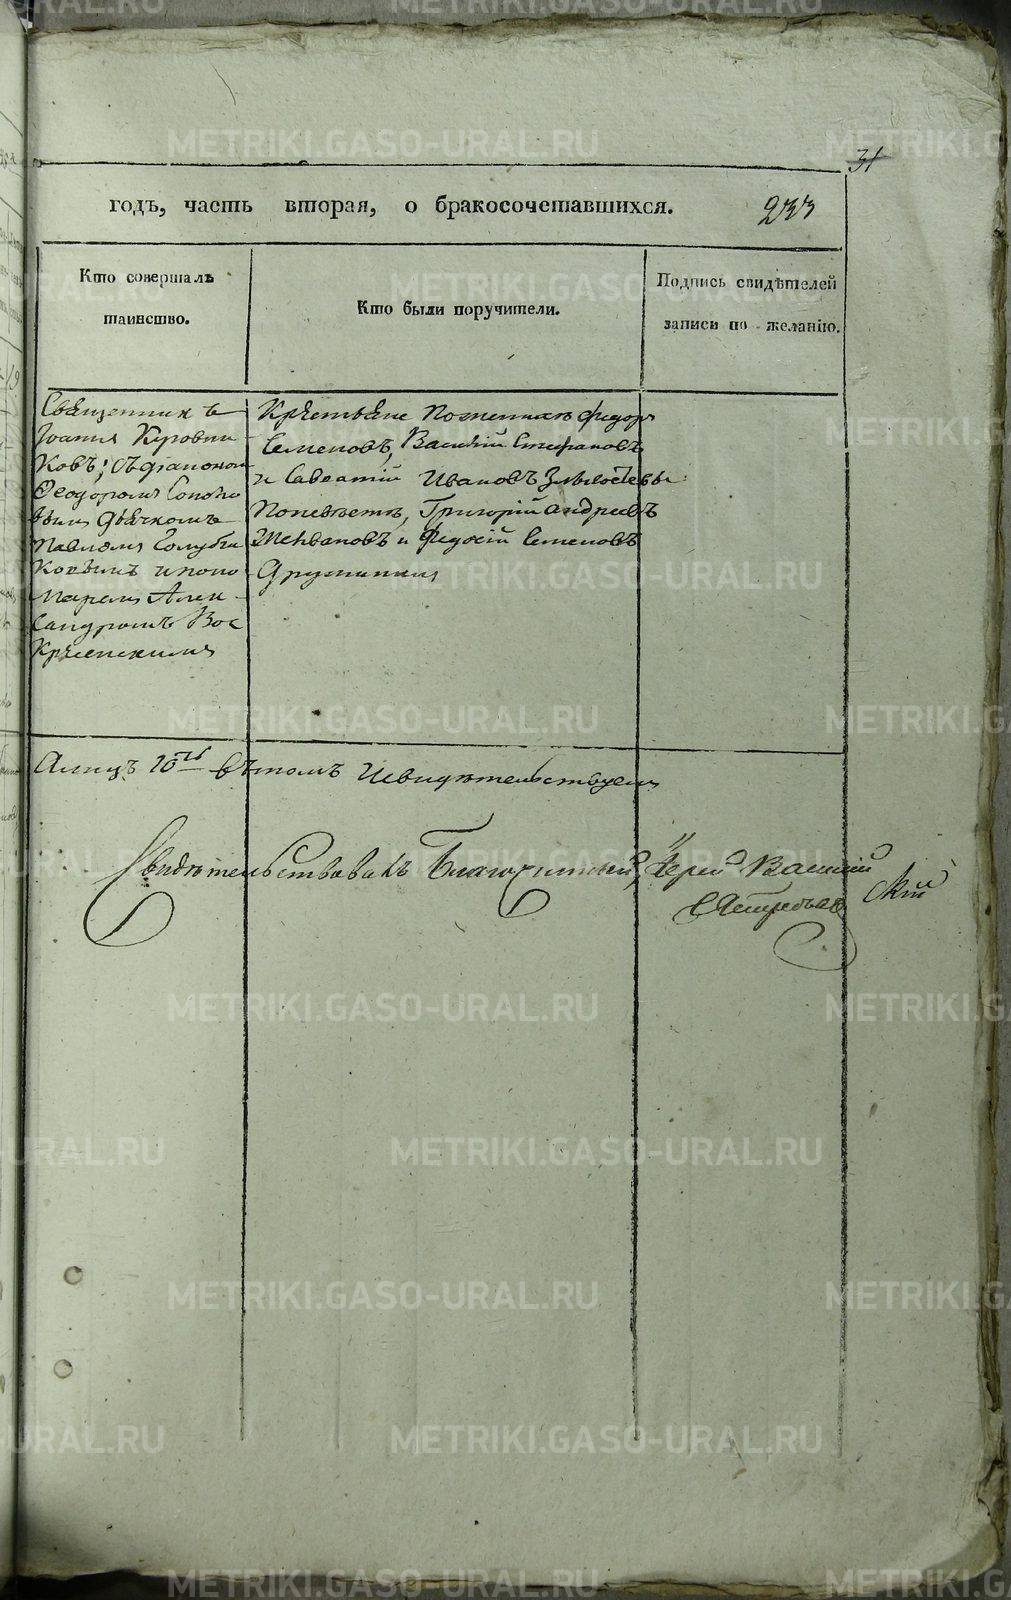 31
годъ, часть вторая, о бракосочетавшихся. 233
Кто совершалъ
таинство.
Кто были поручители.
Подпись свидѣтелей
записи по желанію.
Священникъ
Іоаннъ
ковъ; съ діакономъ
Ѳеодоромъ
вымъ дьячкомъ
Павломъ Голуби
ковымъ и поно
маремъ Алек
сандромъ Вос
кресенскимъ
Крестьяне по женихѣ Федоръ
Семеновъ, Василій Стефановъ
и Савватій Ивановъ
По невѣстѣ, Григорій Андреевъ
и Федосій Семеновъ
Дружинины
10ть въ томъ и свидѣтельствуемъ
Свидѣтельствовалъ Благочинный, Іерей Василій
METRIKI.GASO-URAL.RU